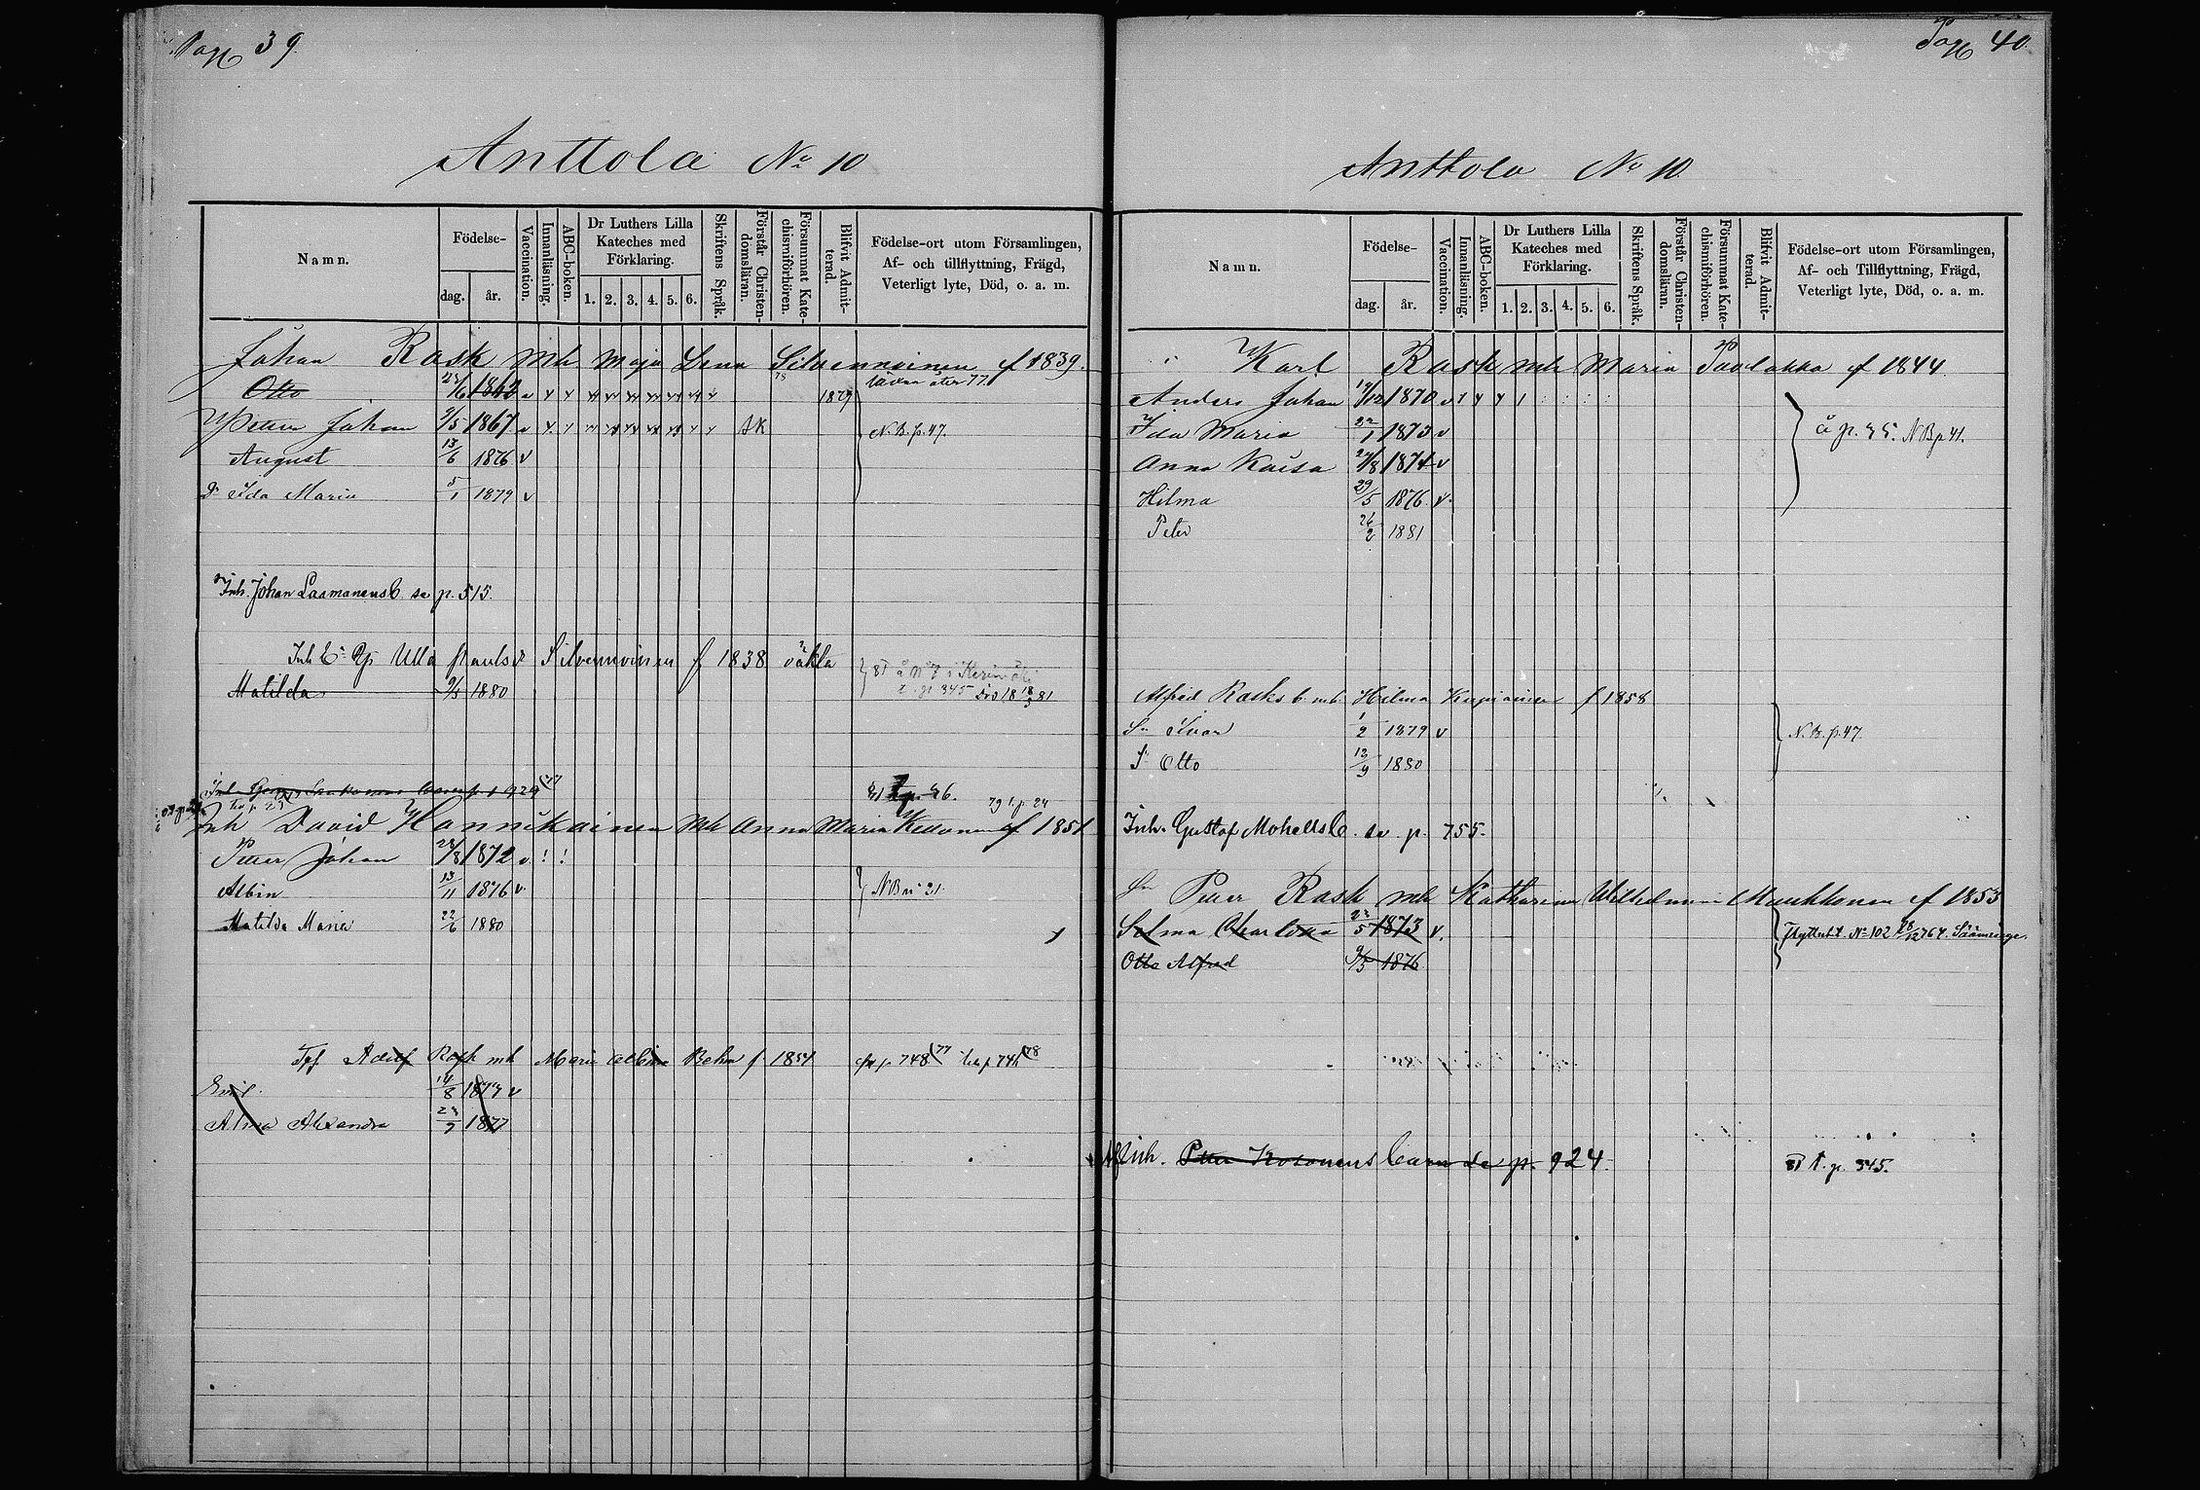 Pag 39.
Anttola No 10
Namn.
Födelse-
dag.
år.
Vaccination.
Innanläsning.
ABC-boken.
Dr Luthers Lilla Kateches med Förklaring.
1. 2. 3. 4. 5. 6.
Skriftens Språk.
Förstår Christendomsläran.
Försummat Katechismiförhören.
Blifvit Admitterad.
Födelse-ort utom Församlingen,
Af- och tillflyttning, Frägd,
Veterligt lyte, Död, o. a. m.
Johan Rask mh Maja Lena Silvennoinen f 1839.
Otto 1862 v 1879
Petter Johan 9/5 1867 v sk N.B. p. 47.
August 13/6 1876 v
Dr Ida Maria 5/1 1879 v
Inh. Johan Laamanens b. se p. 515.
Inh Ulla Paulsd Silvennoinen f 1838
Matilda 9/5 1880 p 345 död 18 18/3 81
p 929
p. 46.
79 t. p. 24
Inh David Hannikainen mh Anna Maria f 1851
Petter Johan 28/8 1872 v ! !
Albin 13/11 1876 v NB n 21.
Matilda Maria 22/6 1880
Adolf Rask mh Maria Albina f 1851 p 748 77 p 741 78
Emil 14/8 v
Alma Alexandra 1877
Pag 40.
Anttola No 10.
Namn.
Födelse-
dag.
år.
Vaccination.
Innanläsning.
ABC-boken.
Dr Luthers Lilla Kateches med Förklaring.
1. 2. 3. 4. 5. 6.
Skriftens Språk.
Förstår Christendomsläran.
Försummat Katechismiförhören.
Blifvit Admitterad.
Födelse-ort utom Församlingen,
Af- och Tillflyttning, Frägd,
Veterligt lyte, Död, o. a. m.
Karl Rask mh Maria Paalakka f 1844
Anders Johan 1870 v
Ida Maria 22/1 1873 v å p. 45. NB p 41.
Anna Kaisa 1874 v
Hilma 29/5 1876 v
Peter 26/2 1881
Alfred Rasks b. mh. Hilma f 1858
Sn Ivar 1/2 1879 v N.B. p. 47
Sn Otto 12/9 1880
Inh. Gustaf Mohells b. se p. 755.
Petter Rask mh Katharina Wilhelmina f 1853
Selma Charlotta 23/5 1873 v.
Flyttat t. No 102 28/12 Sääminge.
Otto Alfred 9/5 1876
Inh. Petter Kosonens barn se p. 924. t. p. 345.